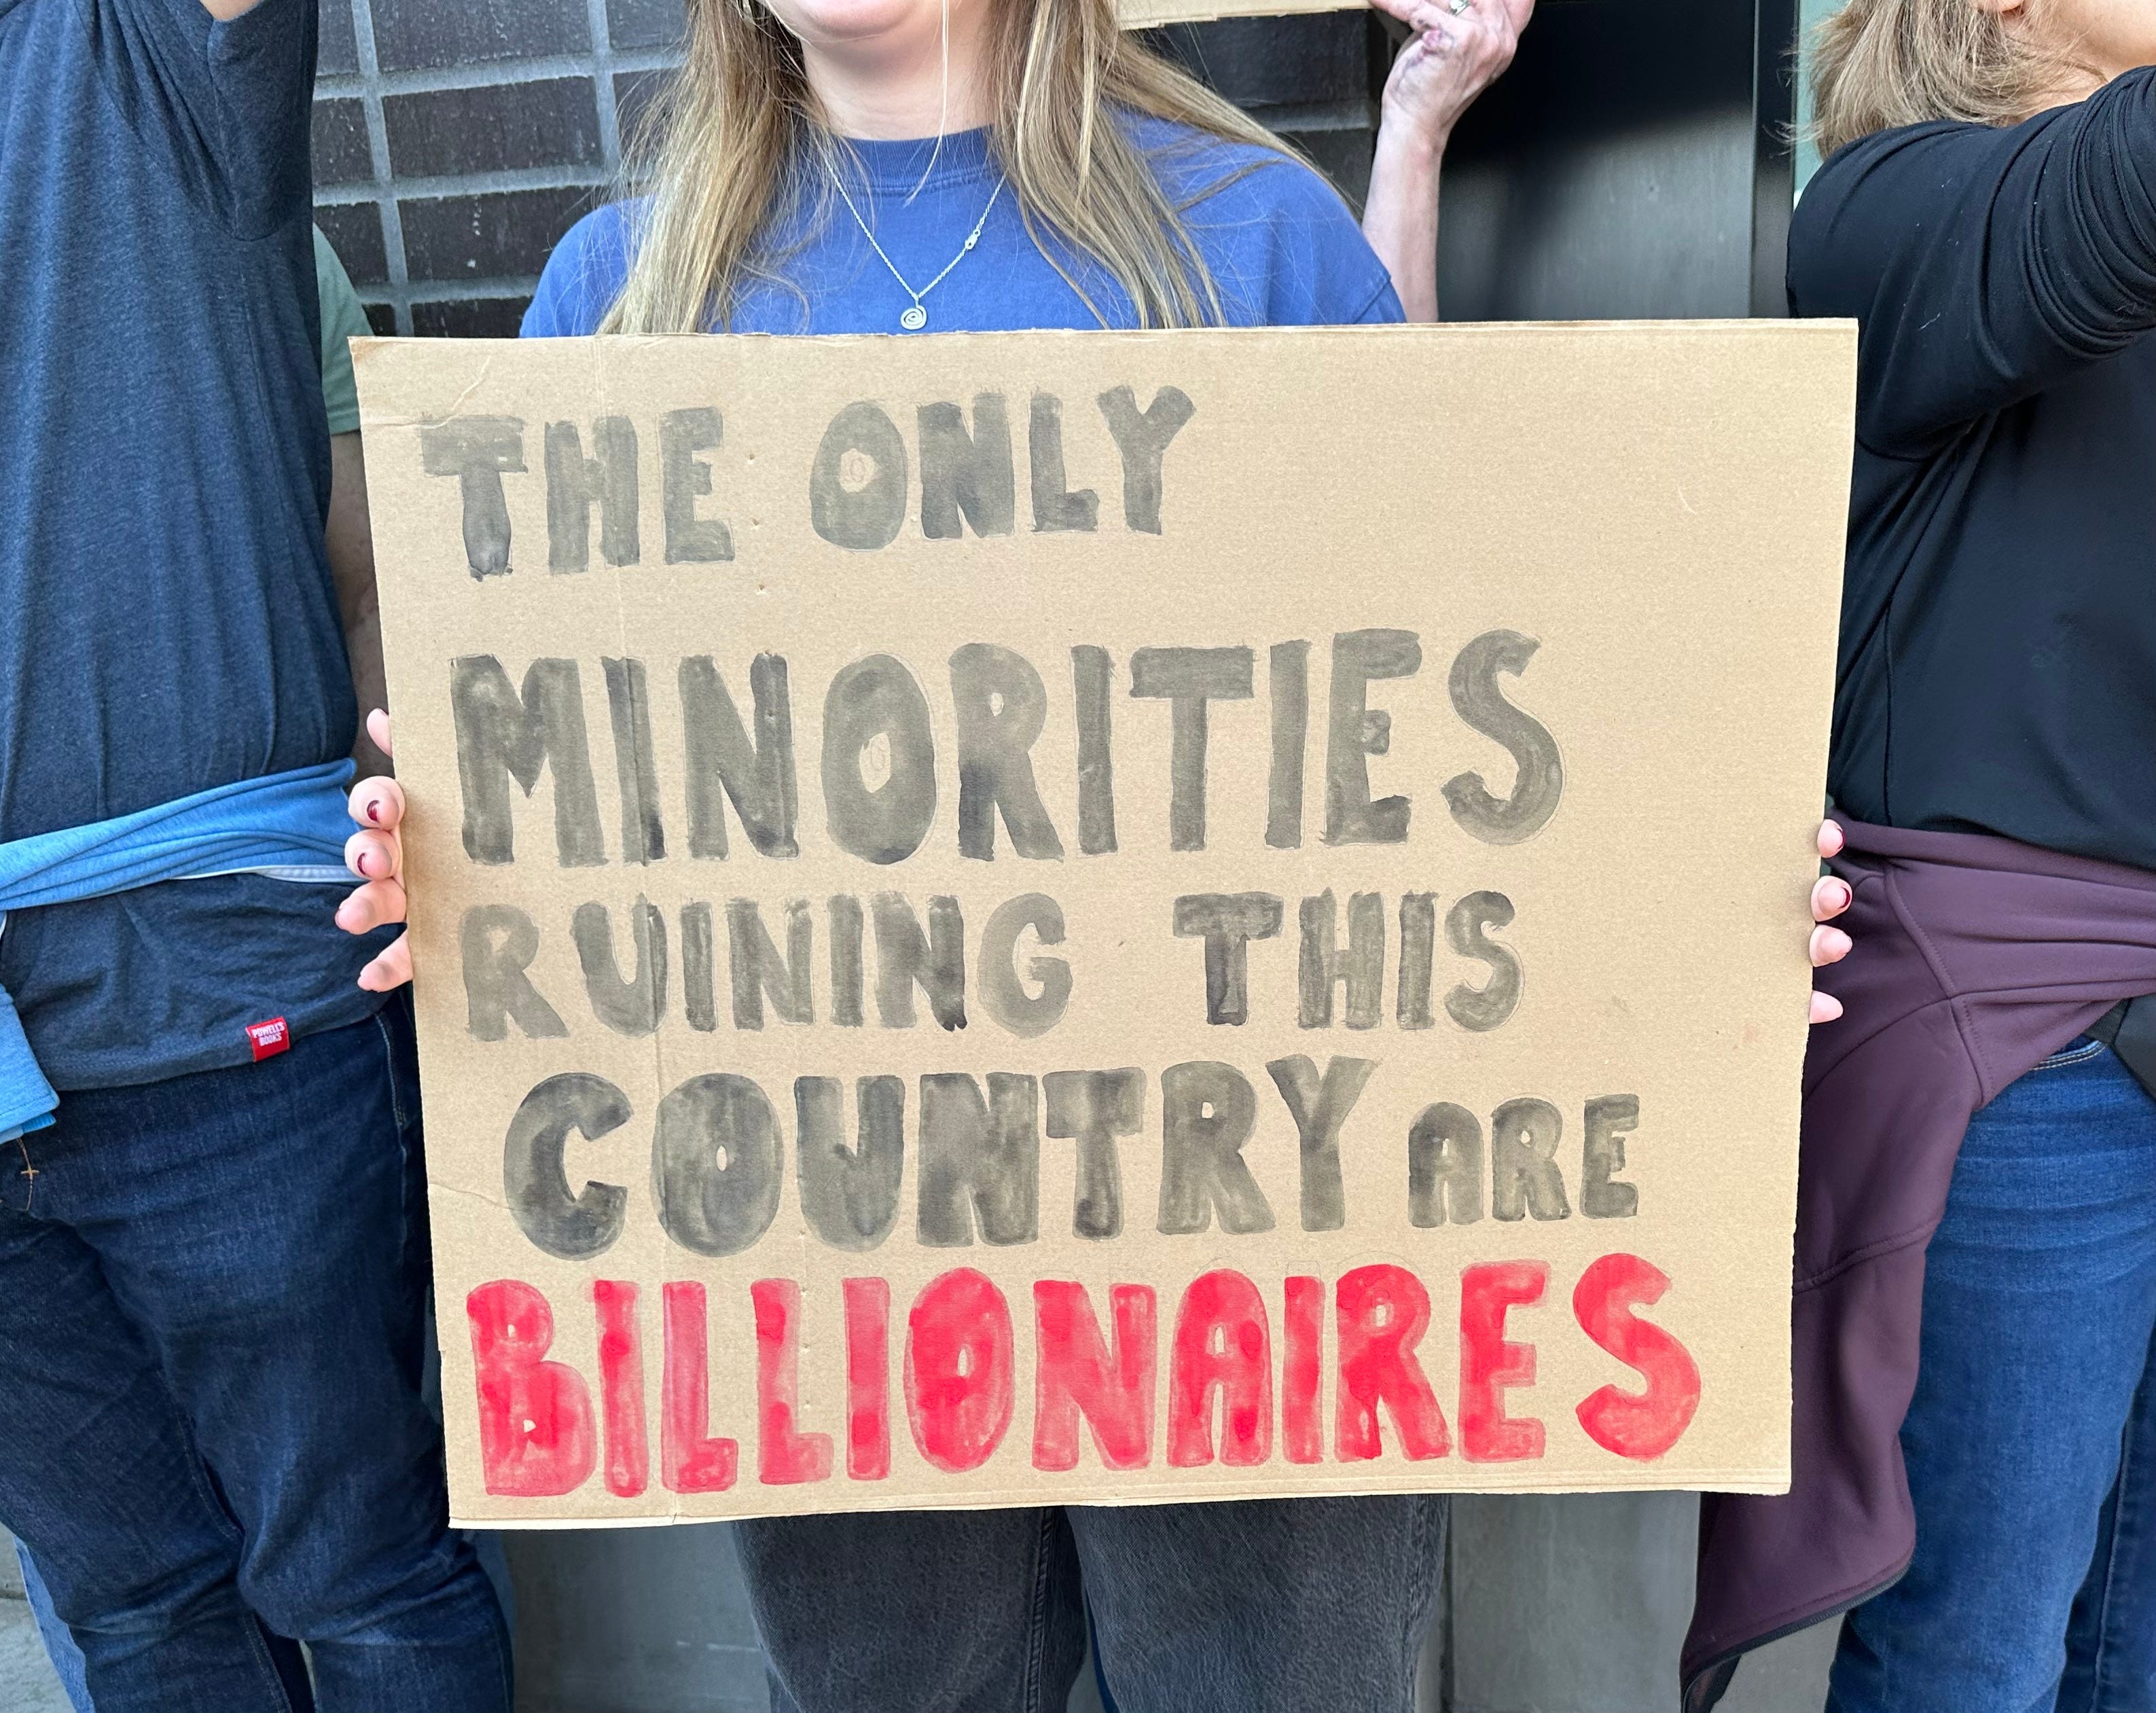 THE ONLY
MINORITIES
RUINING THIS
COUNTRY ARE
BILLIONAIRES
POWELL'S
BOOKS